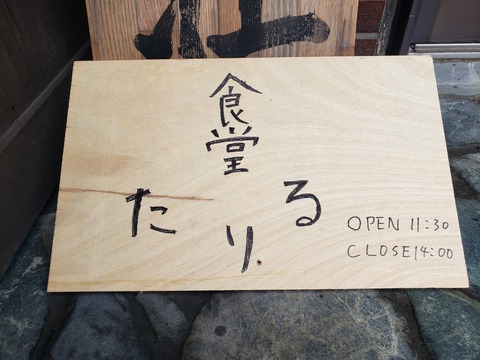 食堂
たりる
OPEN 11:30
CLOSE 14:00